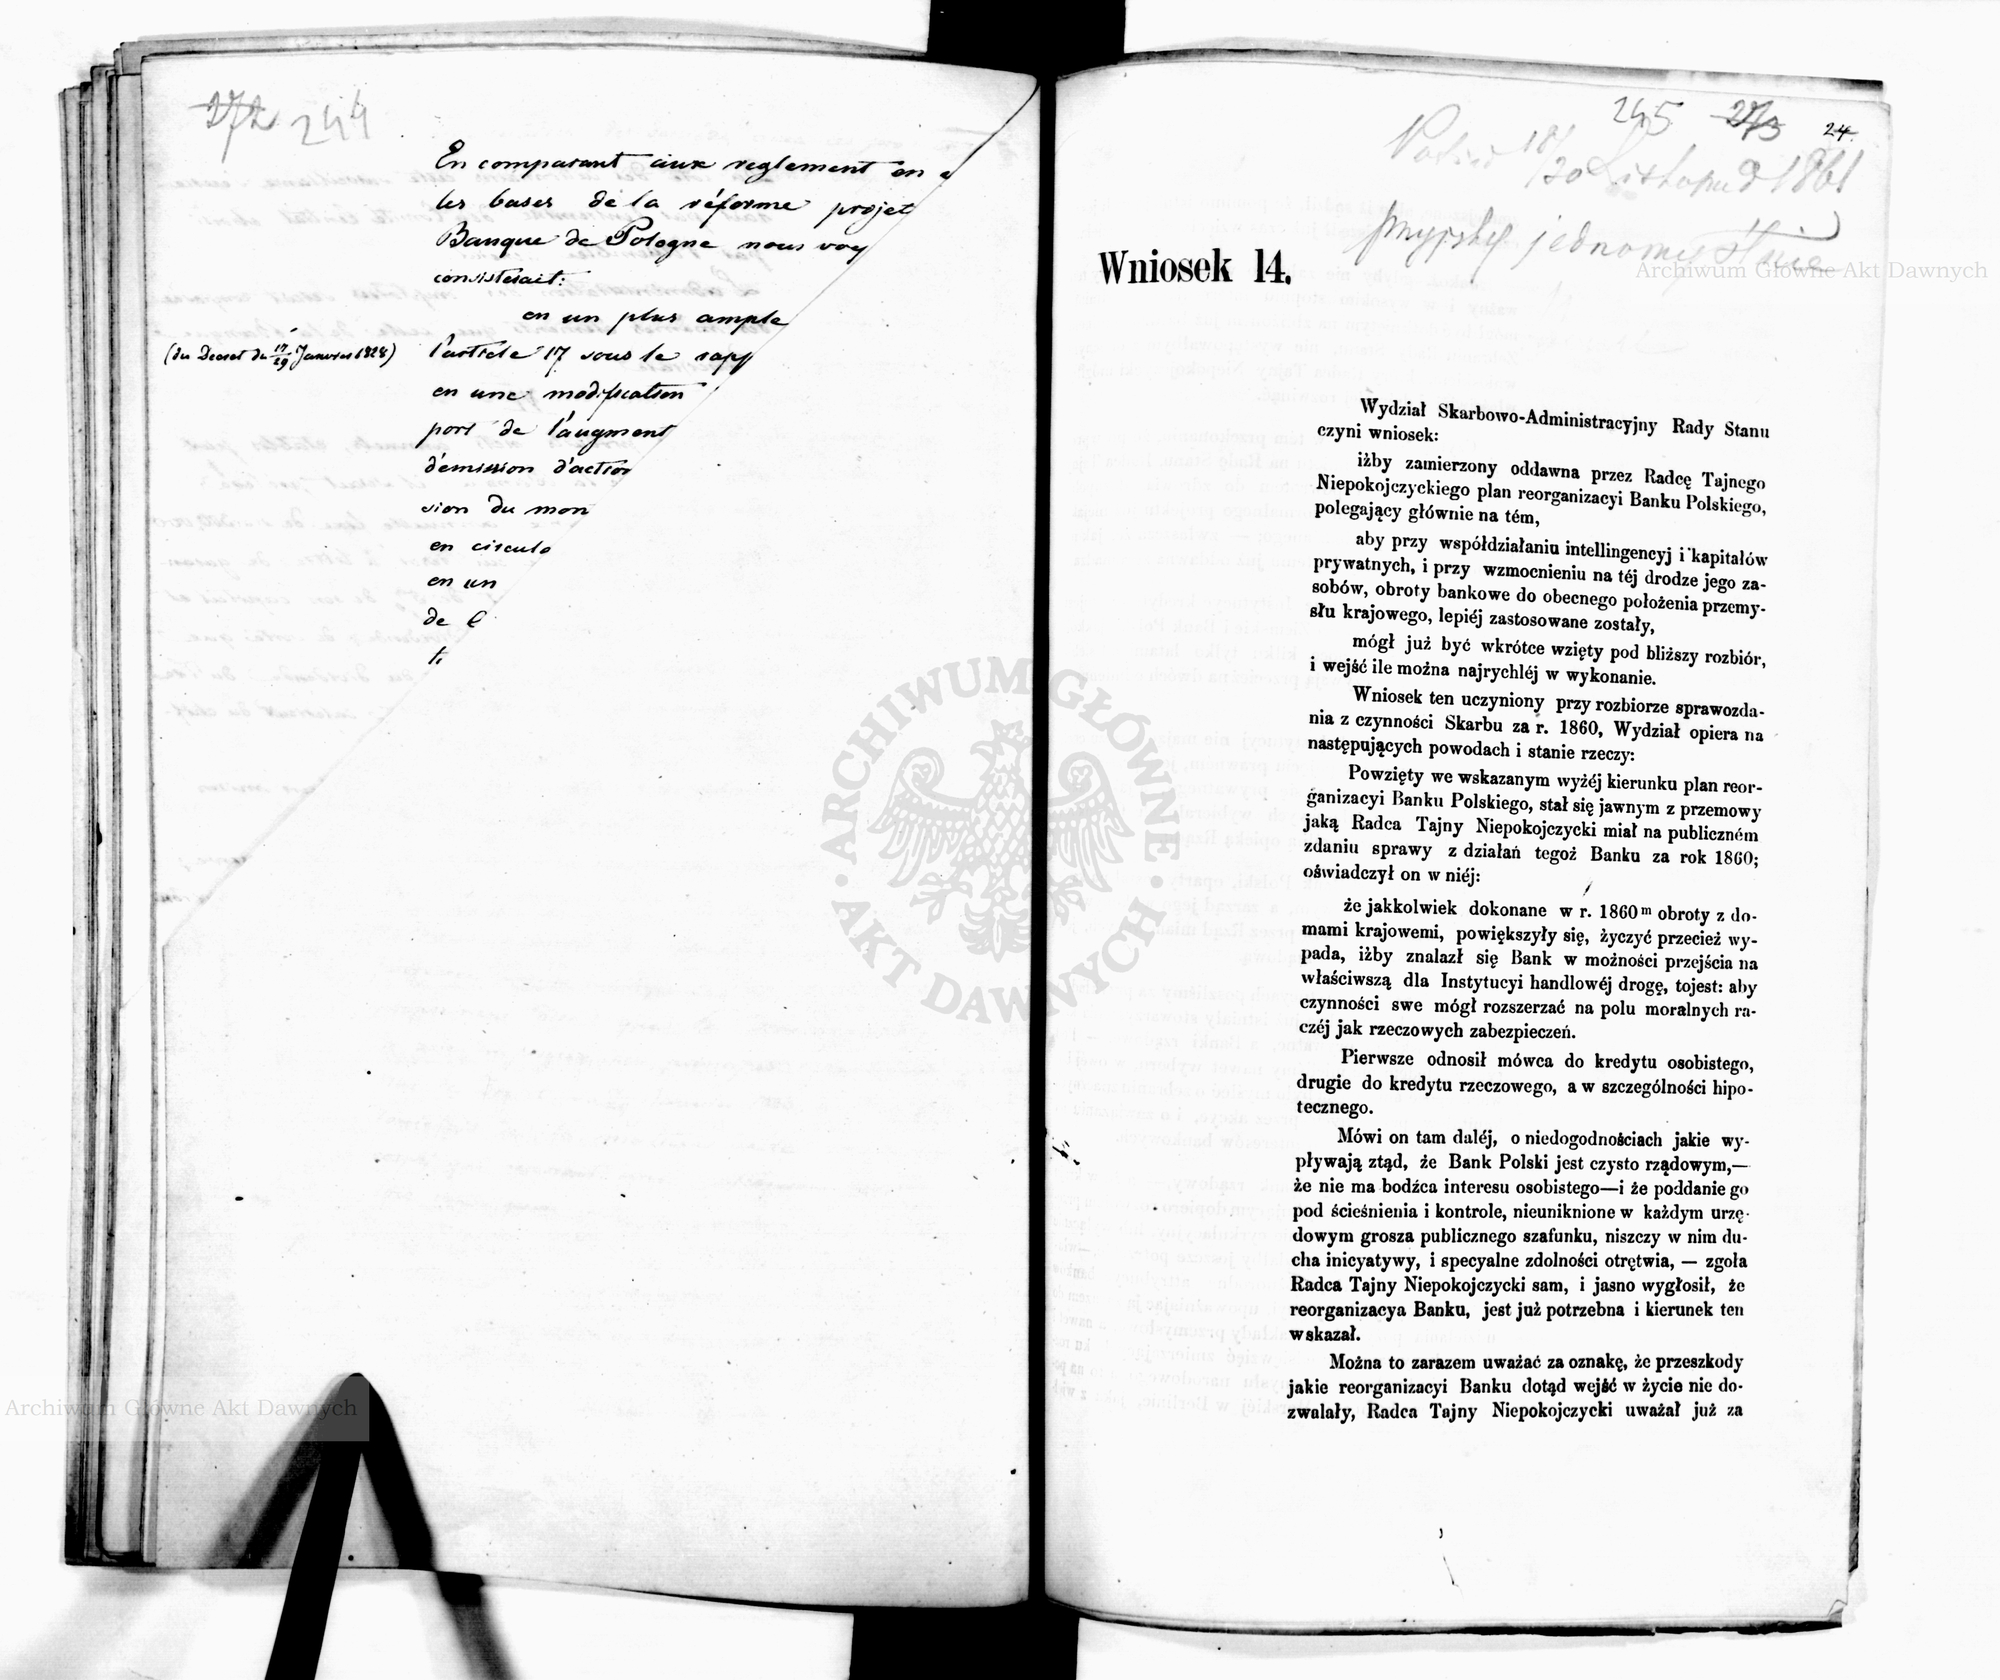 272 244
En comparant aux reglement en
les bases de la réforme projet
Banque de Pologne nous voy
consisterait:
en un plus ample
(du Decret du 17/29 Janvier 1828) l'article 17 sous le rapp
en une modification
port de l'augment
d'émission d'action
sion du mon
en circula
en un
de l
ti
245 273 24
18/30 Listopad 1861
jednomyślnie
Wniosek 14.
Wydział Skarbowo-Administracyjny Rady Stanu
czyni wniosek:
iżby zamierzony oddawna przez Radcę Tajnego
Niepokojczyckiego plan reorganizacyi Banku Polskiego,
polegający głównie na tém,
aby przy współdziałaniu intellingencyj i kapitałów
prywatnych, i przy wzmocnieniu na téj drodze jego za-
sobów, obroty bankowe do obecnego położenia przemy-
słu krajowego, lepiéj zastosowane zostały,
mógł już być wkrótce wzięty pod bliższy rozbiór,
i wejść ile można najrychléj w wykonanie.
Wniosek ten uczyniony przy rozbiorze sprawozda-
nia z czynności Skarbu za r. 1860, Wydział opiera na
następujących powodach i stanie rzeczy:
Powzięty we wskazanym wyżéj kierunku plan reor-
ganizacyi Banku Polskiego, stał się jawnym z przemowy
jaką Radca Tajny Niepokojczycki miał na publiczném
zdaniu sprawy z działań tegoż Banku za rok 1860;
oświadczył on w niéj:
że jakkolwiek dokonane w r. 1860m obroty z do-
mami krajowemi, powiększyły się, życzyć przecież wy-
pada, iżby znalazł się Bank w możności przejścia na
właściwszą dla Instytucyi handlowéj drogę, tojest: aby
czynności swe mógł rozszerzać na polu moralnych ra-
czéj jak rzeczowych zabezpieczeń.
Pierwsze odnosił mówca do kredytu osobistego,
drugie do kredytu rzeczowego, a w szczególności hipo-
tecznego.
Mówi on tam daléj, o niedogodnościach jakie wy-
pływają ztąd, że Bank Polski jest czysto rządowym,—
że nie ma bodźca interesu osobistego—i że poddanie go
pod ścieśnienia i kontrole, nieuniknione w każdym urzę-
dowym grosza publicznego szafunku, niszczy w nim du-
cha inicyatywy, i specyalne zdolności otrętwia, — zgoła
Radca Tajny Niepokojczycki sam, i jasno wygłosił, że
reorganizacya Banku, jest już potrzebna i kierunek ten
wskazał.
Można to zarazem uważać za oznakę, że przeszkody
jakie reorganizacyi Banku dotąd wejść w życie nie do-
zwalały, Radca Tajny Niepokojczycki uważał już za
Archiwum Główne Akt Dawnych
Archiwum Główne Akt Dawnych
ARCHIWUM GŁÓWNE AKT DAWNYCH